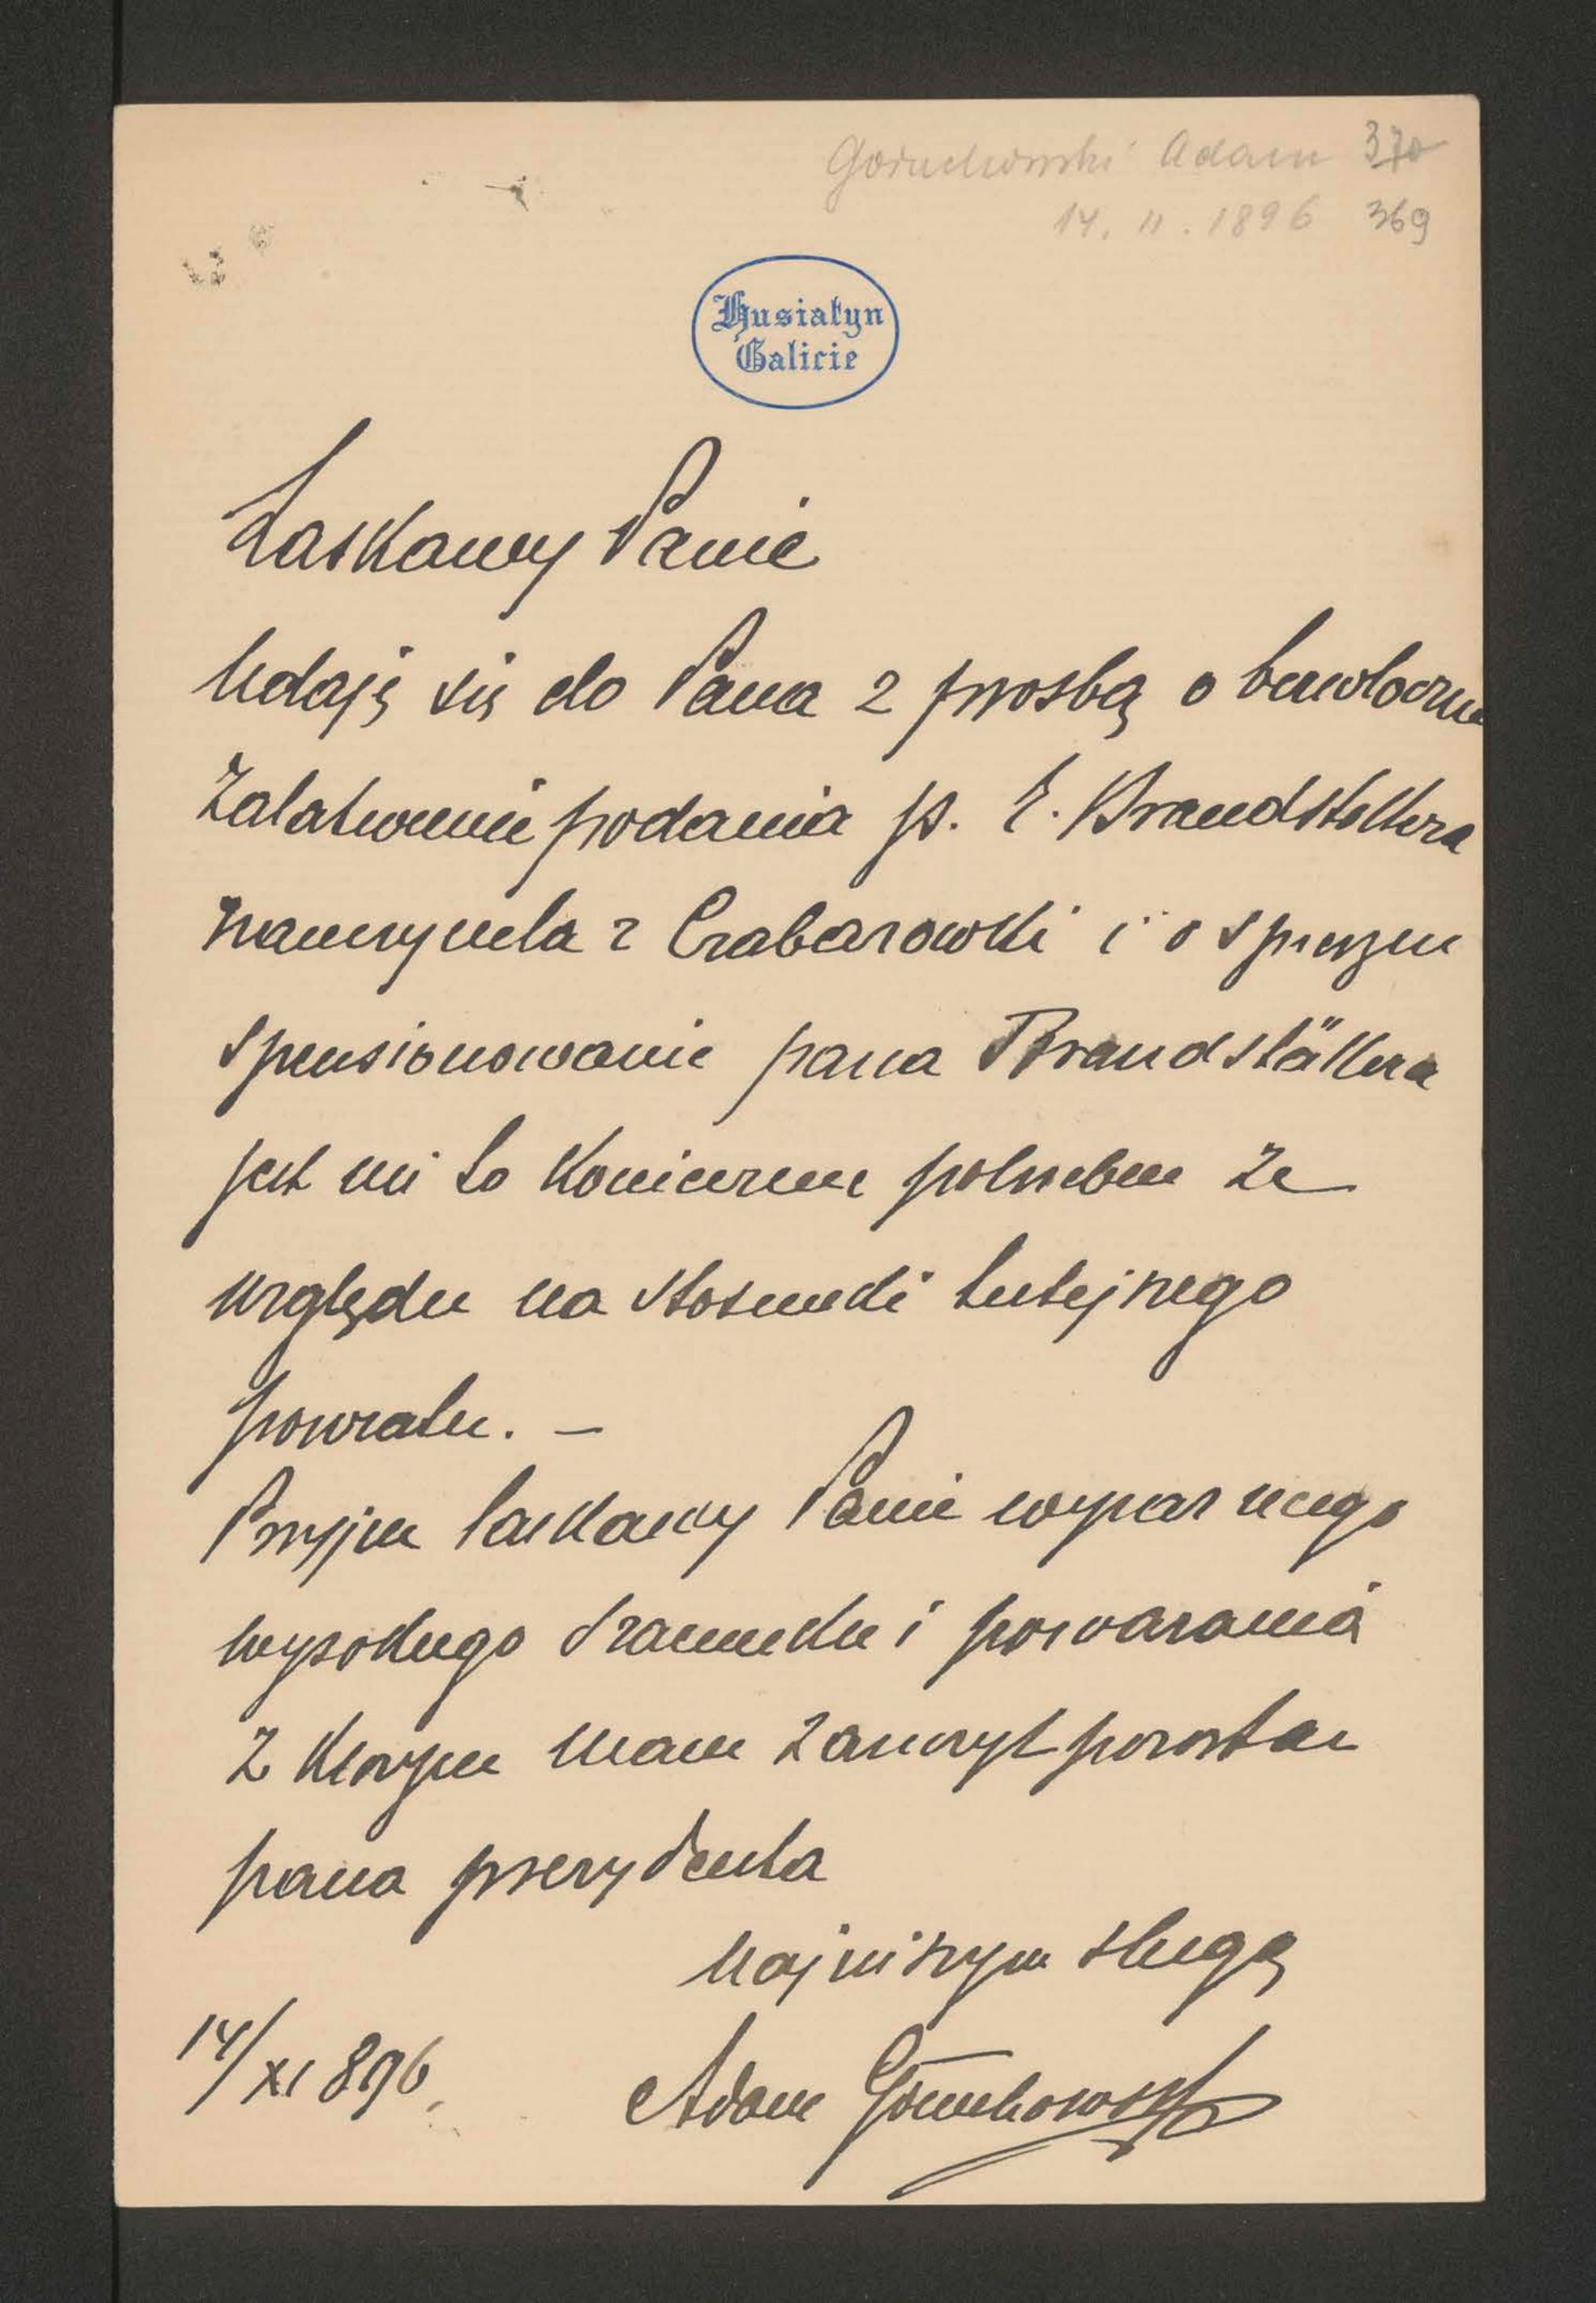 Goruchowski Adam 370
14. 11. 1896 369
Husiatyn
Galicie
Łaskawy Panie
Udaję się do Pana z prosbą o bezwłoczne
załatwienie podania p. E. Brandstettera
nauczyciela z Czabarowki i o spieszne
spensionowanie pana Brandstättera
jest mi to koniecznie potrzebne ze
względu na stosunki tutejszego
powiatu. —
Przyjm łaskawy Panie wyraz mego
wysokiego szacunku i poważania
z ktorym mam zaszczyt pozostać
pana prezydenta
najniższym sługą
14/XI 896. Adam